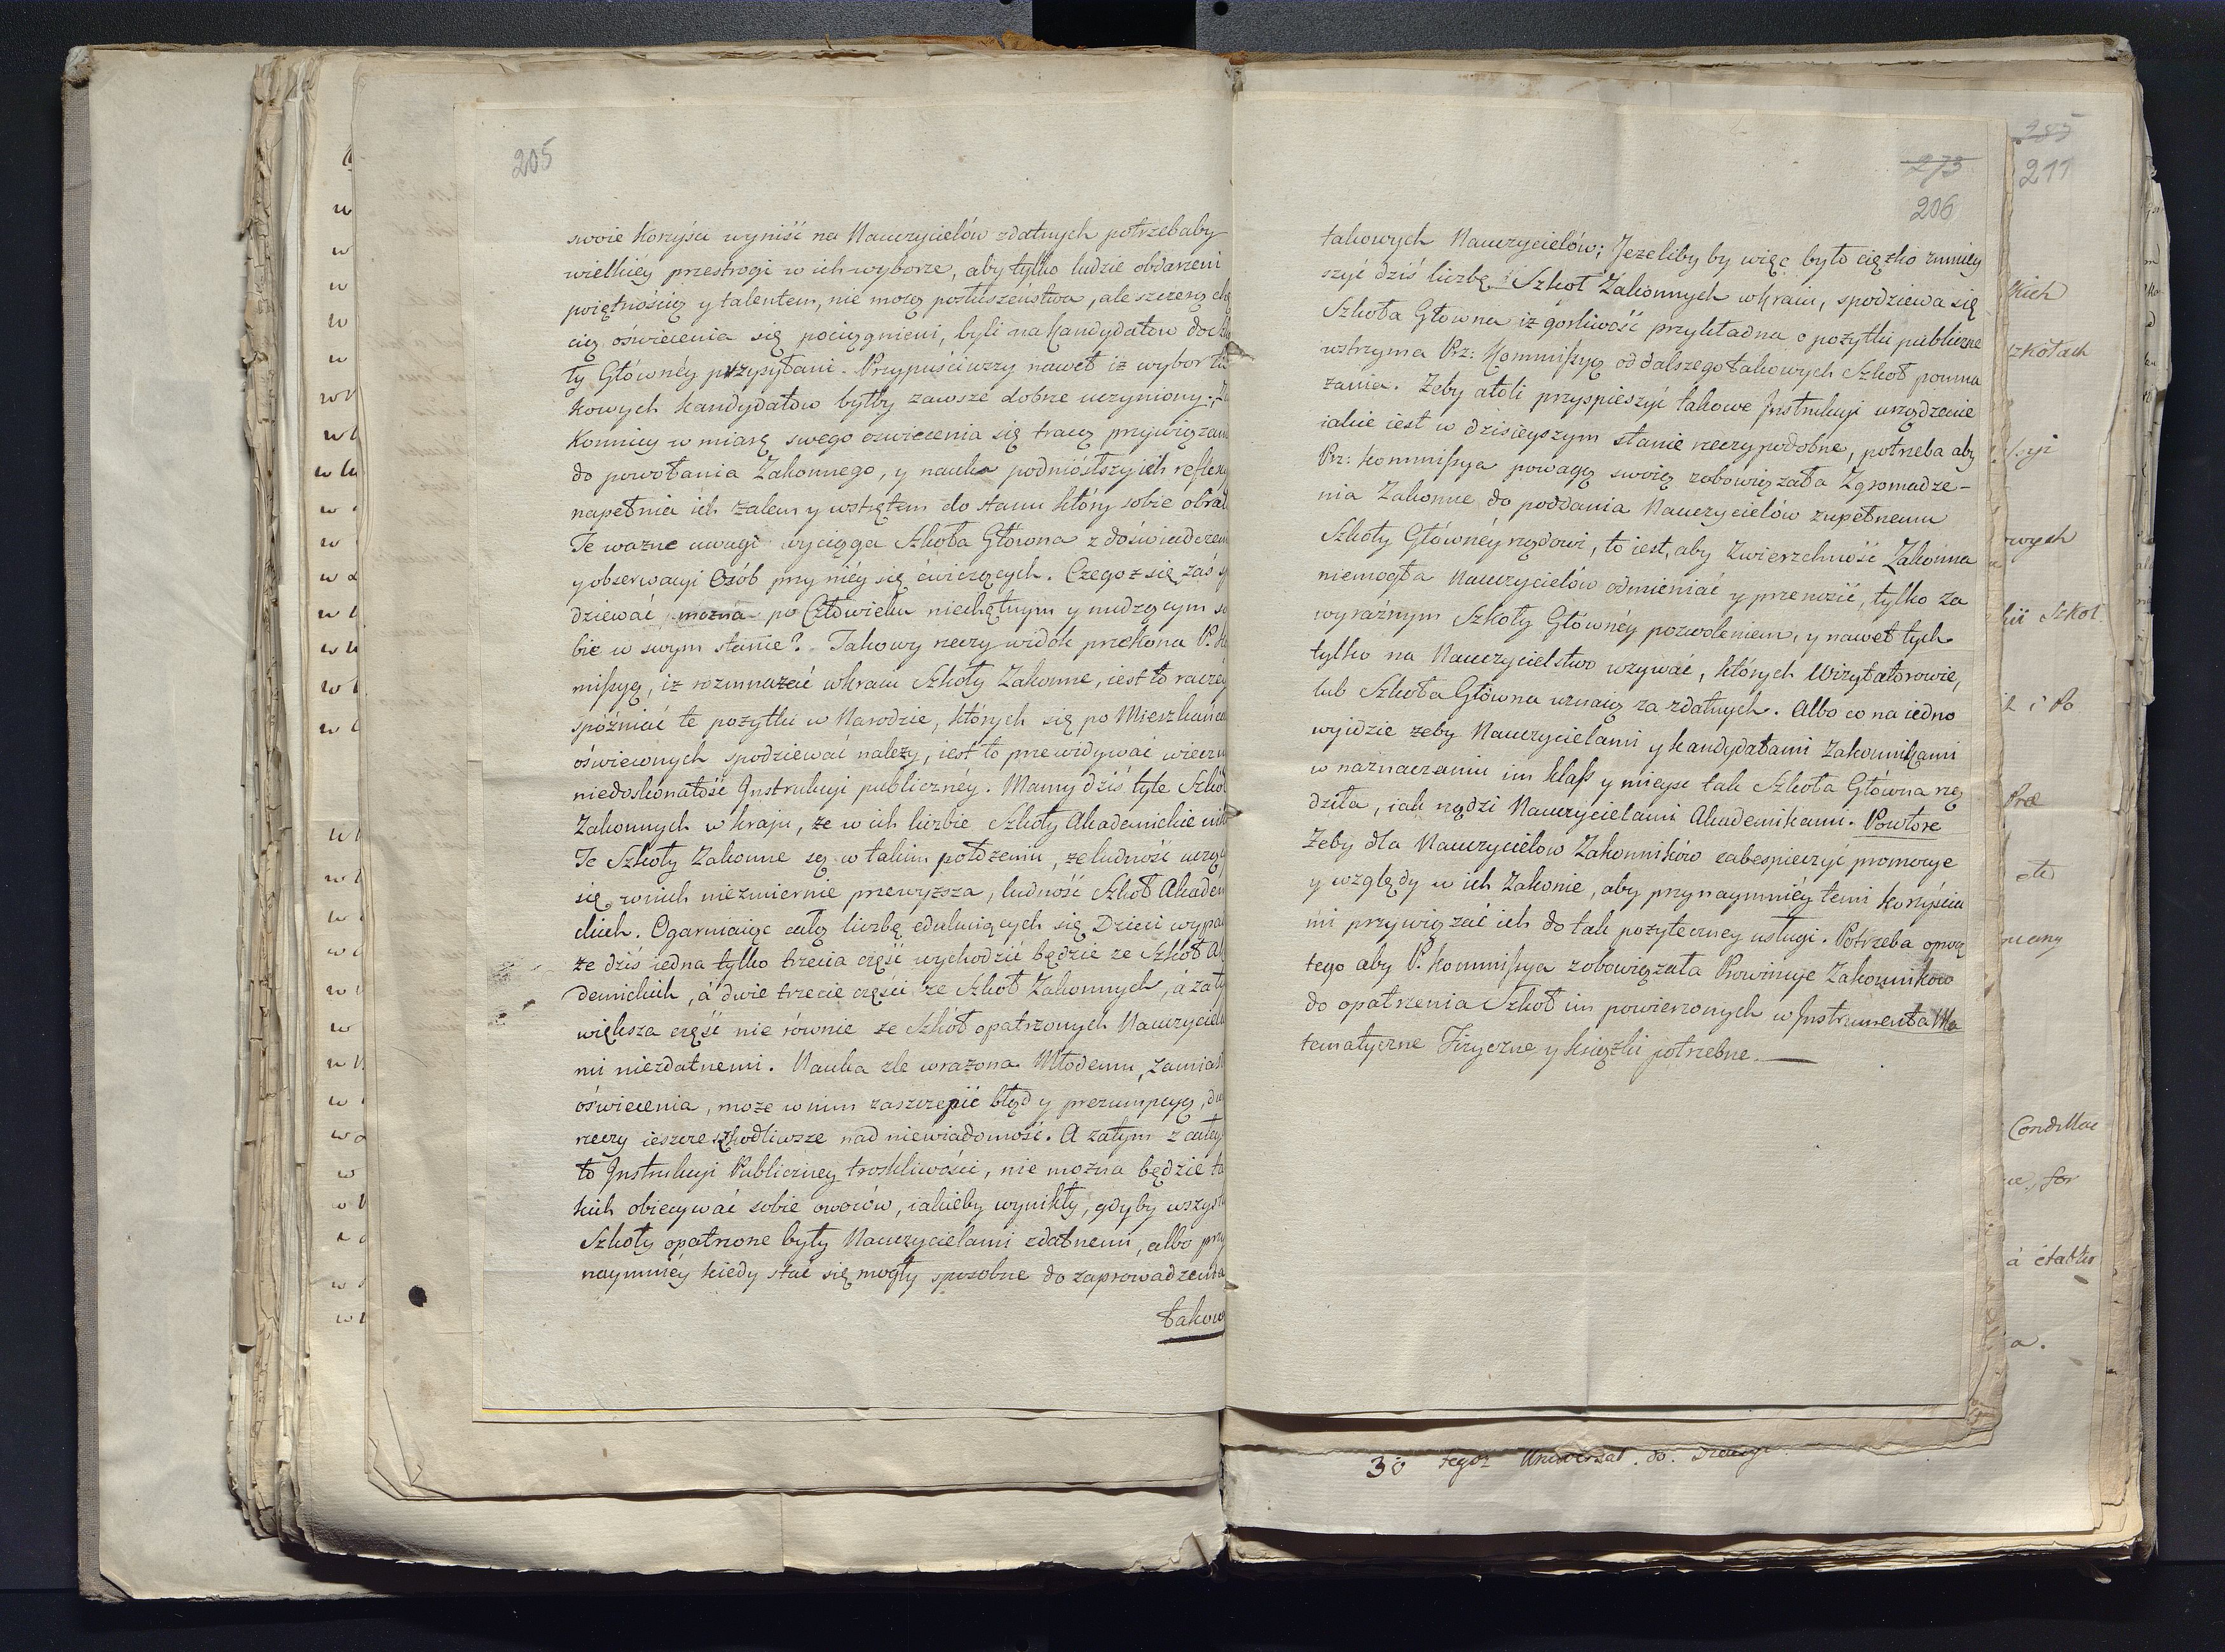 205
swoie korzyści wyniść na Nauczycielów zdatnych potrzebaby
wielkiéy przestrogi w ich wyborze, aby tylko ludzie obdarzeni
poiętnością y talentem, nie mocą posłuszeństwa, ale szczerą chę
cią oświecenia się pociągnieni, byli na kandydatów do Szko
ły Główney przysyłani. Przypuściwszy nawet iż wybor ta
kowych kandydatów byłby zawsze dobrze uczyniony; Za
konnicy w miarę swego oświecenia się tracą przywiązan
do powołania Zakonnego, y nauka podniósłszy ich reflex
napełnia ich żalem y wstrętem do stanu który sobie obral
Te ważne uwagi wyciąga Szkoła Główna z doświadczen
y obserwacyi Osób przy niéy się ćwiczących. Czegoż się zaś sp
dziewać można po Człowieku niechętnym y nudzącym so
bie w swym stanie? Takowy rzeczy widok przekona P. Ko
missyą, iż rozmnażać w kraiu Szkoły Zakonne, iest to raczéy
spóźniać te pożytki w Narodzie, których się po Mieszkańca
oświeconych spodziewać należy, iest to przewidywać wieczn
niedoskonałość Instrukcyi publicznéy. Mamy dziś tyle Szkół
Zakonnych w kraju, że w ich liczbie Szkoły Akademickie nik
Te Szkoły Zakonne są w takim położeniu, że ludność uczą
się w nich niezmiernie przewyższa, ludność Szkół Akadem
ckich. Ogarniaiąc całą liczbę edukuiących się Dzieci wypad
że dziś iedna tylko trzecia część wychodzić będzie ze Szkół Ak
demickich, á dwie trzecie części ze Szkół Zakonnych, á zaty
większa część nie równie ze Szkół opatrzonych Nauczyciela
mi niezdatnemi. Nauka źle wrażona Młodemu, zamiast
oświecenia, może w nim zaszczepić błąd y prezumpcyą, dw
rzeczy ieszcze szkodliwsze nad niewiadomość. A zatym z całéy
to Instrukcyi Publiczney troskliwości, nie można będzie ta
kich obiecywać sobie owoców, iakieby wynikły, gdyby wszyst
Szkoły opatrzone były Nauczycielami zdatnemi, albo przy
naymniéy kiedy stać się mogły sposobne do zaprowadzenia
takow
273
206
takowych Nauczycielów; Jeżeliby by więc było ciężko zmniey
szyć dziś liczbę Szkoł Zakonnych w kraiu, spodziewa się
Szkoła Główna iż gorliwość przykładna o pożytki publiczne
wstrzyma Prz: Kommissyą od dalszego takowych Szkoł pomna
żania. Żeby atoli przyspieszyć takowe Instrukcyi urządzenie
iakie iest w dzisieyszym stanie rzeczy podobne, potrzeba aby
Prz: Kommissya powagą swoią zobowiązała Zgromadze-
nia Zakonne do poddania Nauczycielów zupełnemu
Szkoły Główney rządowi, to iest, aby Zwierzchność Zakonna
niemogła Nauczycielów odmieniać y przenoźić, tylko za
wyraźnym Szkoły Główney pozwoleniem, y nawet tych
tylko na Nauczycielstwo wzywać, których Wizytatorowie,
lub Szkoła Główna uznaią za zdatnych. Albo co na iedno
wyidzie żeby Nauczycielami y kandydatami Zakonnikami
w naznaczaniu im klass y mieysc tak Szkoła Główna rzą
dziła, iak rządzi Nauczycielami Akademikami. Powtore
Żeby dla Nauczycielow Zakonników zabespieczyć promocye
y względy w ich Zakonie, aby przynaymniéy temi korzyścia
mi przywiązać ich do tak pożyteczney usługi. Potrzeba oprocz
tego aby P. Kommissya zobowiązała Prowincye Zakonnikow
do opatrzenia Szkoł im powierzonych w Instrumenta Ma
tematyczne Fizyczne y książki potrzebne.
211
szkołach
Szkoł
Condillac